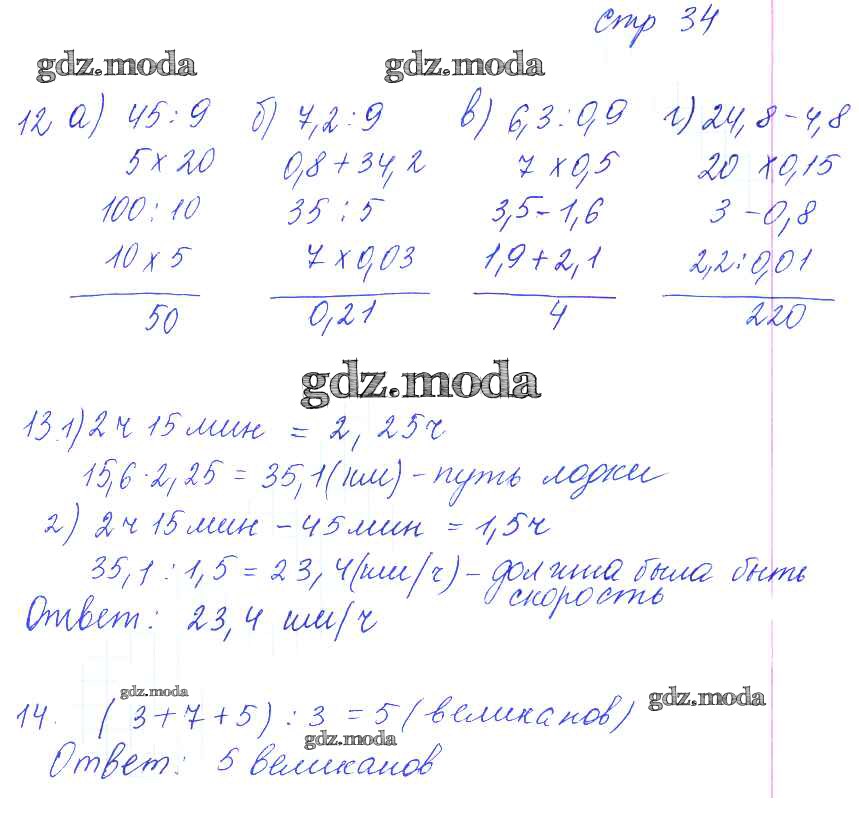 стр 34
gdz.moda gdz.moda
12 а) 45 : 9 б) 7,2 : 9 в) 6,3 : 0,9 г) 24,8 - 4,8
5 x 20 0,8 + 34,2 7 x 0,5 20 x 0,15
100 : 10 35 : 5 3,5 - 1,6 3 - 0,8
10 x 5 7 x 0,03 1,9 + 2,1 2,2 : 0,01
50 0,21 4 220
gdz.moda
13. 1) 2 ч 15 мин = 2,25 ч
15,6 · 2,25 = 35,1 (км) - путь лодки
2) 2 ч 15 мин - 45 мин = 1,5 ч
35,1 : 1,5 = 23,4 (км/ч) - должна была быть
скорость
Ответ: 23,4 км/ч
gdz.moda gdz.moda
14. (3 + 7 + 5) : 3 = 5 (великанов)
gdz.moda
Ответ: 5 великанов